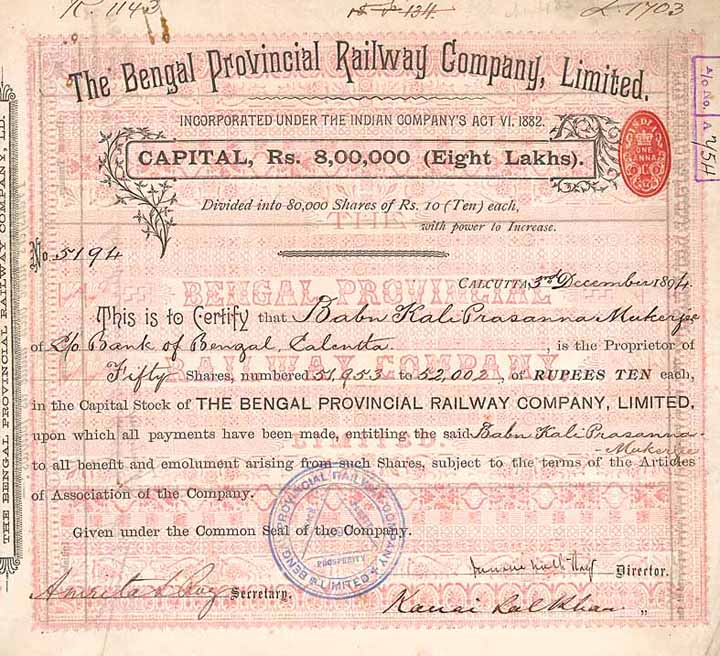 K. 1143
L. 1703
The Bengal Provincial Railway Company, Limited.
INCORPORATED UNDER THE INDIAN COMPANY'S ACT VI. 1882.
CAPITAL, Rs. 8,00,000 (Eight Lakhs).
INDIA
ONE ANNA
A/c No. A 754
Divided into 80,000 Shares of Rs. 10 (Ten) each,
with power to Increase.
No. 5194
CALCUTTA, 3rd December 1894.
This is to Certify that Babu Kali Prasanna Mukerjee
of C/o Bank of Bengal, Calcutta. , is the Proprietor of
Fifty Shares, numbered 51,953 to 52,002 , of RUPEES TEN each,
in the Capital Stock of THE BENGAL PROVINCIAL RAILWAY COMPANY, LIMITED,
upon which all payments have been made, entitling the said Babu Kali Prasanna
Mukerjee
to all benefit and emolument arising from such Shares, subject to the terms of the Articles
of Association of the Company.
Given under the Common Seal of the Company.
BENGAL PROVINCIAL RAILWAY COMPANY LIMITED
PROSPERITY
Director.
Amrita L Roy Secretary.
Kanai Lal Khan "
THE BENGAL PROVINCIAL RAILWAY COMPANY, LD.
THE
BENGAL PROVINCIAL
RAILWAY COMPANY
LIMITED